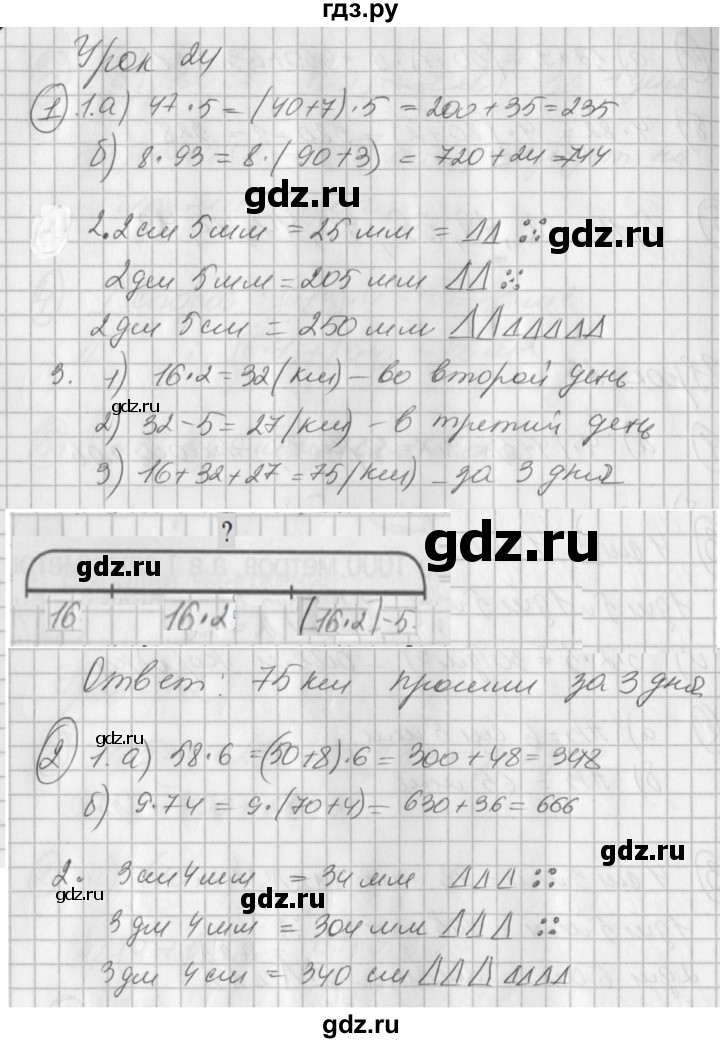 гдз.ру
Урок 24
1 .1.а) 47·5 = (40+7)·5 = 200+35=235
б) 8·93 = 8·(90+3) = 720+24=744
gdz.ru
gdz.ru
2. 2см 5мм = 25мм = ΔΔ
2дм 5мм = 205 мм ΔΔ
2дм 5см = 250 мм ΔΔΔΔΔΔΔ
3. 1) 16·2 = 32 (км) – во второй день
gdz.ru
2) 32-5 = 27 (км) – в третий день
3) 16+32+27 = 75 (км) – за 3 дня
?
gdz.ru
gdz.ru
1000 метров, а в
16 16·2 (16·2)-5
Ответ: 75 км прошли за 3 дня
gdz.ru
2 1. а) 58·6 = (50+8)·6 = 300+48=348
б) 9·74 = 9·(70+4) = 630+36=666
gdz.ru
2. 3см 4мм = 34 мм ΔΔΔ
gdz.ru
gdz.ru
3 дм 4мм = 304 мм ΔΔΔ
gdz.ru
3 дм 4см = 340 см ΔΔΔΔΔΔΔ
gdz.ru